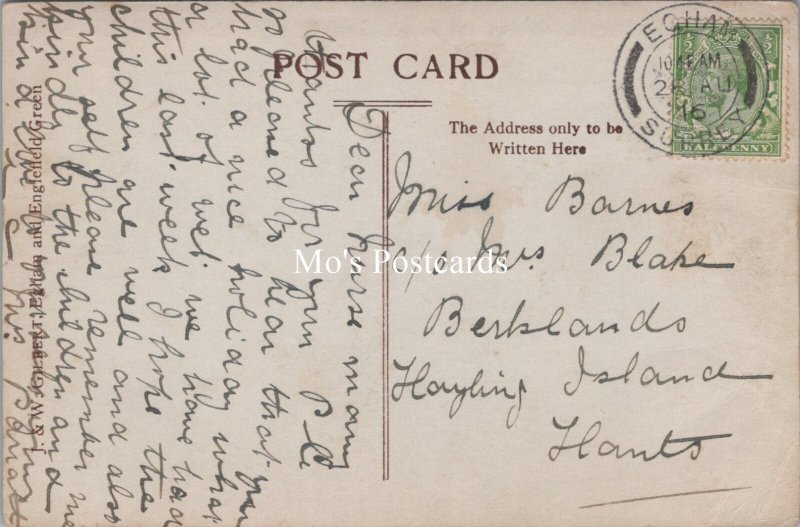 POST CARD
The Address only to be
Written Here
EGHAM
10 45 AM
26 AU
16
SURREY
HALFPENNY
Miss Barnes
c/o Mrs. Blake
Berklands
Hayling Island
Hants
Dear Nurse many
thanks for your P.C
so pleased to hear that you
had a nice holiday what
a lot of wet we have had
this last week I hope the
children are well and also
your self please remember me
kindly to the children and
J. & W. GILBERT, Egham and Englefield Green
Mo's Postcards